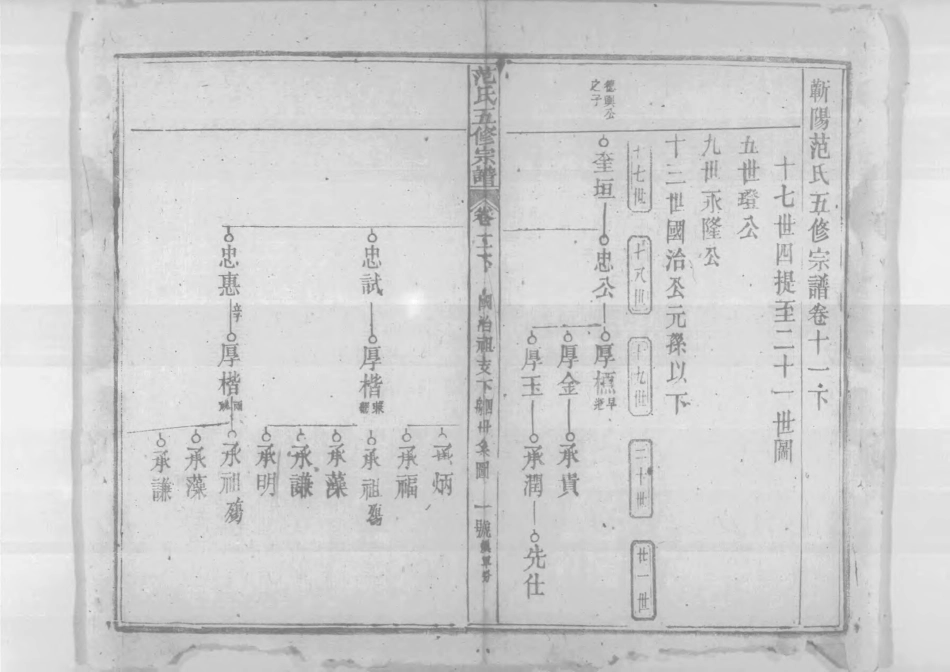 蘄陽范氏五修宗譜卷十一下
十七世四提至二十一世圖
五世璒公
九世永隆公
十二世國治公元孫以下
十七世
十八世
十九世
二十世
廿一世
公
之子
奎垣
忠公
厚櫄
早
厚金
承貴
厚玉
承潤
先仕
范氏五修宗譜
卷十一下
國治祖支下
世系圖
一號
忠試
厚楷
承炳
承福
承祖殤
承藻
承謙
承明
忠惠
厚楷
承祖殤
承藻
承謙